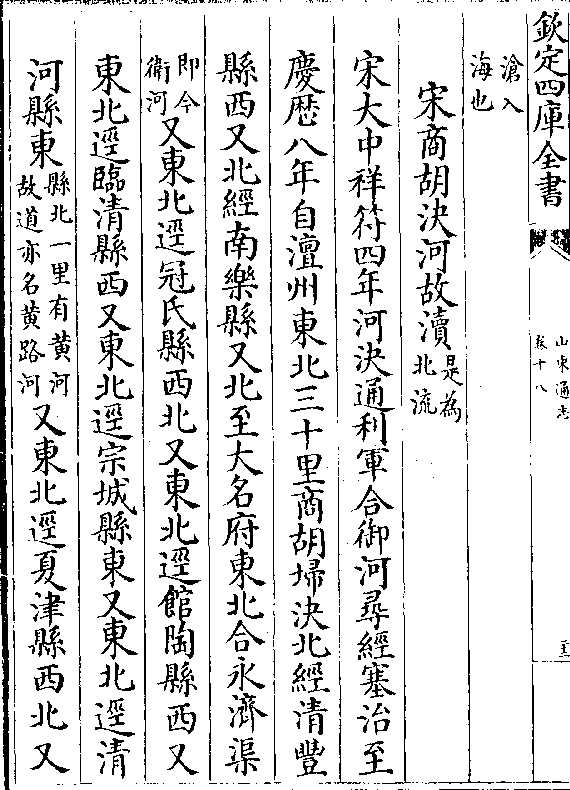 欽定四庫全書
山東通志
卷十八
滄入
海也
宋商胡決河故瀆是為
北流
宋大中祥符四年河決通利軍合御河尋經塞治至
慶歷八年自澶州東北三十里商胡埽決北經清豐
縣西又北經南樂縣又北至大名府東北合永濟渠
即今
衛河又東北逕冠氏縣西北又東北逕館陶縣西又
東北逕臨清縣西又東北逕宗城縣東又東北逕清
河縣東縣北一里有黄河
故道亦名黄路河又東北逕夏津縣西北又